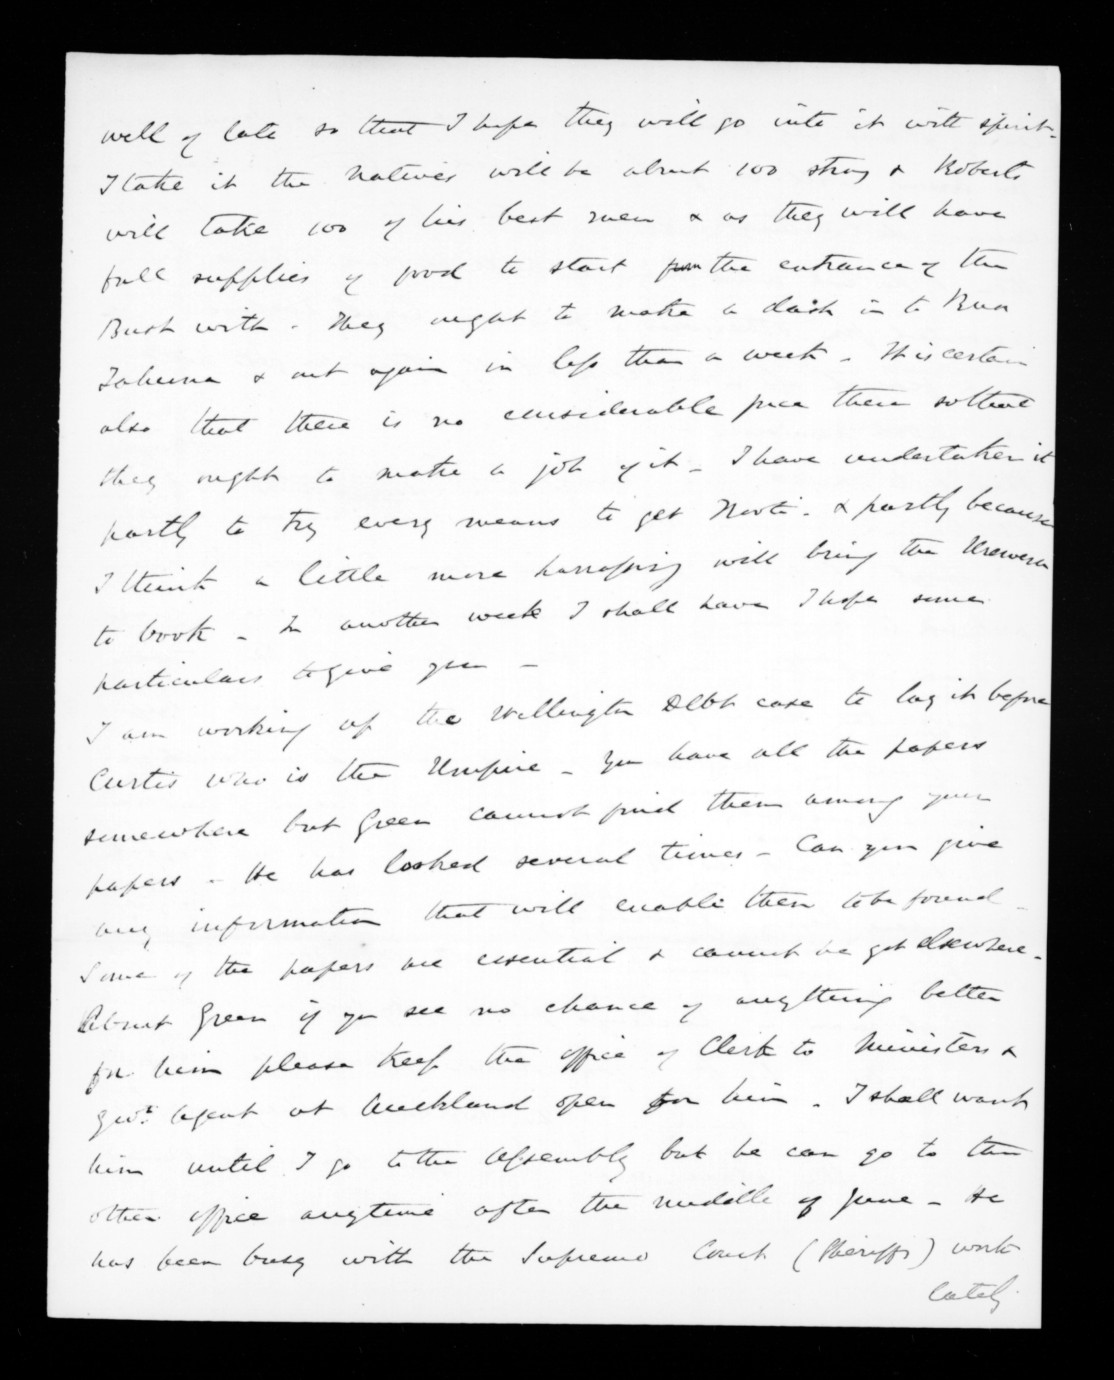 well of late so that I hope they will go into it with spirit-
I take it the Natives will be about 100 strong & Roberts
will take 100 of his best men & as they will have
full supplies of food to start from the entrance of the
Bush with. They ought to make a dash in to Rua
Tahuna & out again in less than a week - It is certain
also that there is no considerable force there so that
they ought to make a job of it - I have undertaken it
partly to try every means to get Kooti - & partly because
I think a little more harrassing will bring the Urewera
to book - In another week I shall have I hope some
particulars to give you -
I am working up the Wellington Debt case to lay it before
Curtis who is the Umpire - You have all the papers
somewhere but Green cannot find them among your
papers - He has looked several times - Can you give
any information that will enable them to be found -
Some of the papers are essential & cannot be got elsewhere -
About Green if you see no chance of anything better
for him please keep the office of Clerk to Ministers &
Govt. Agent at Auckland open for him - I shall want
him until I go to the Assembly but he can go to the
other office anytime after the middle of June - He
has been busy with the Supreme Court (Sheriffs) work
lately